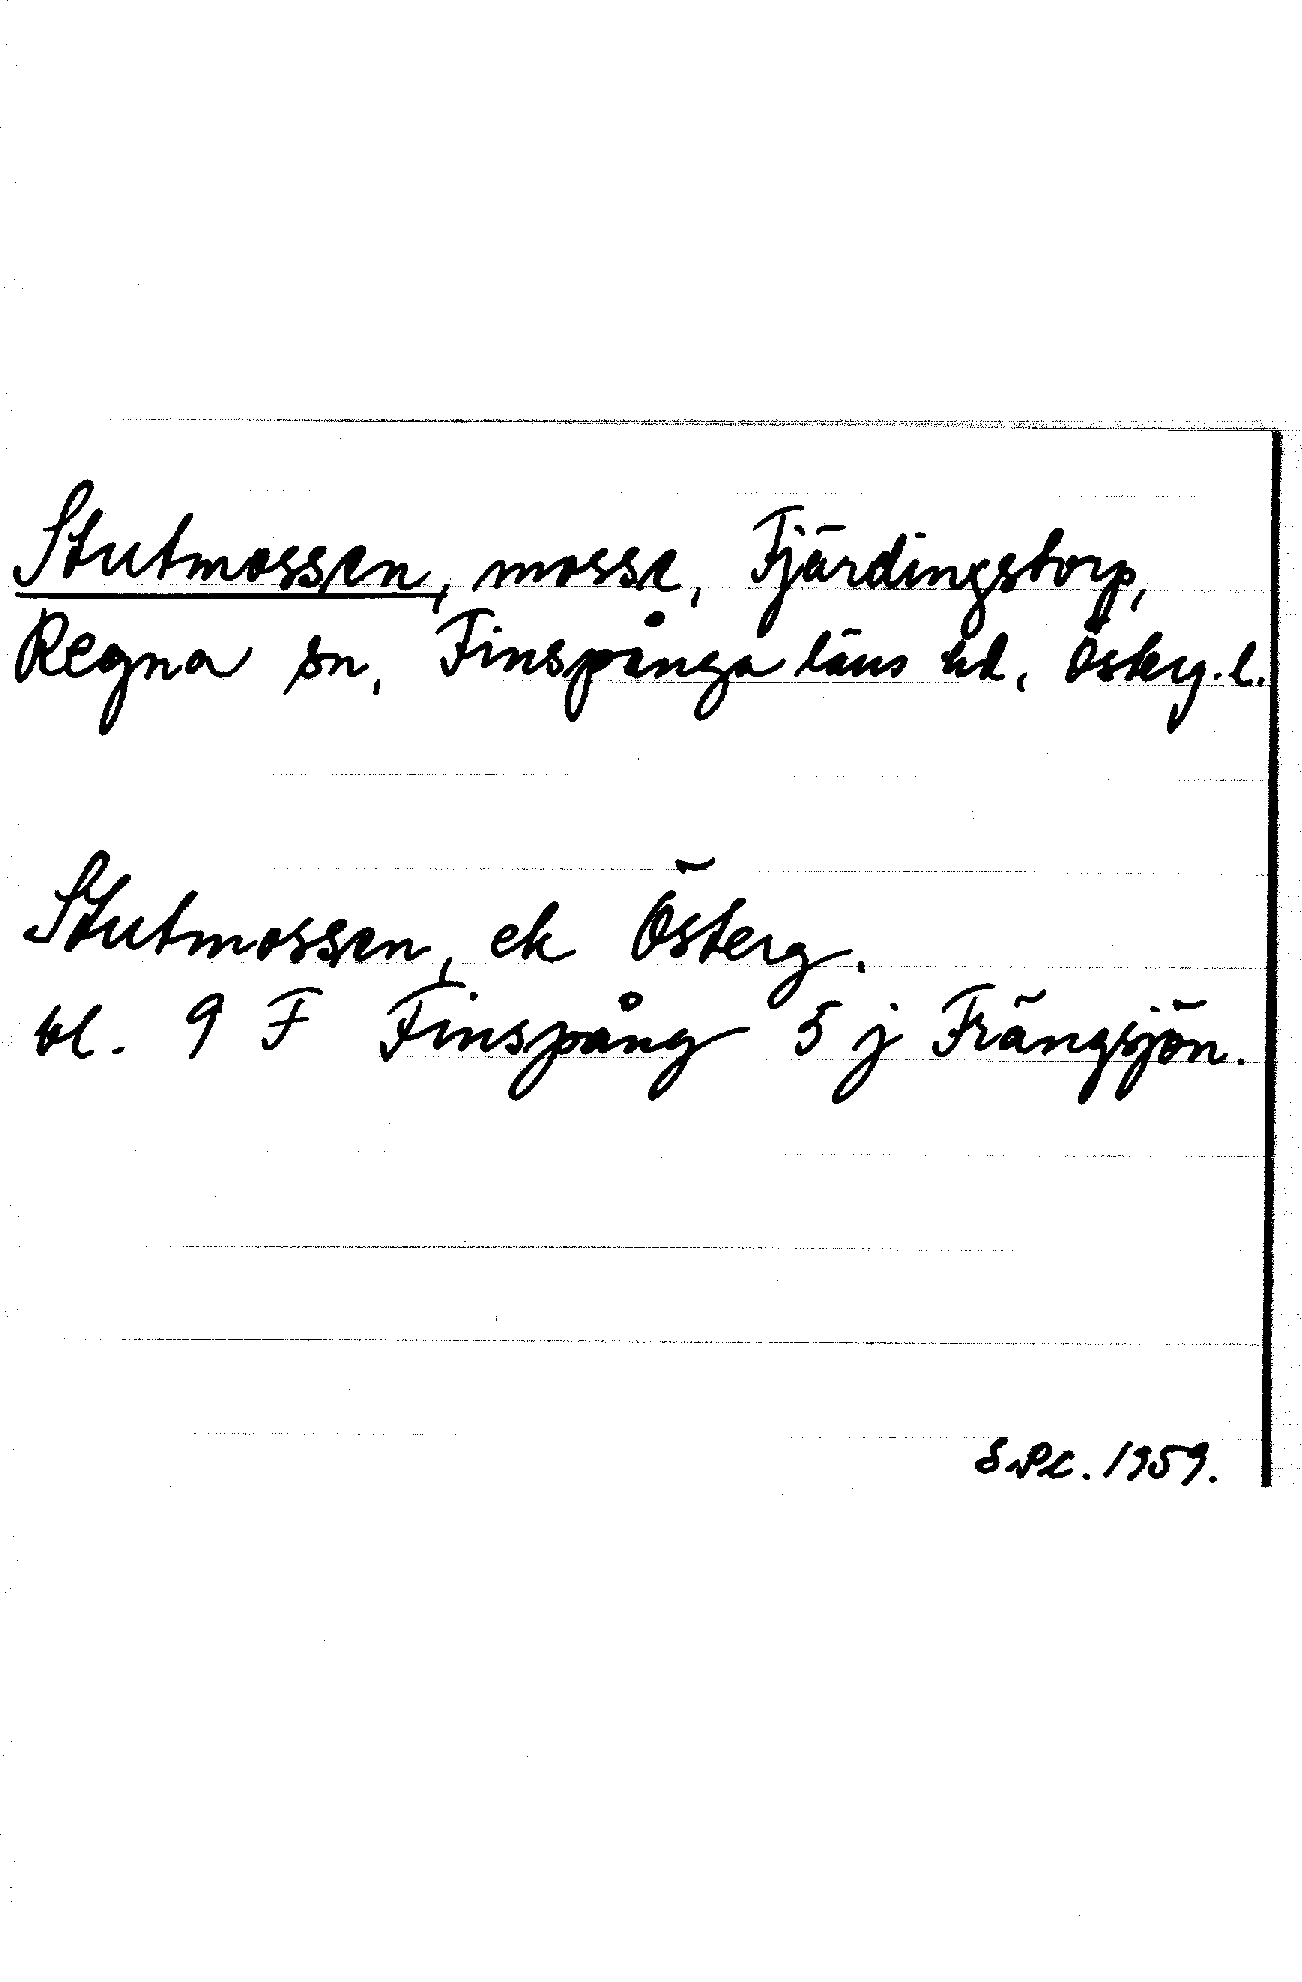 Stutmossen, mosse, Fjärdingstorp,
Regna sn, Finspånga läns hd, Österg. l.
Stutmossen, ek Österg.
bl. 9 F Finspång 5 j Frängsjön.
1959.